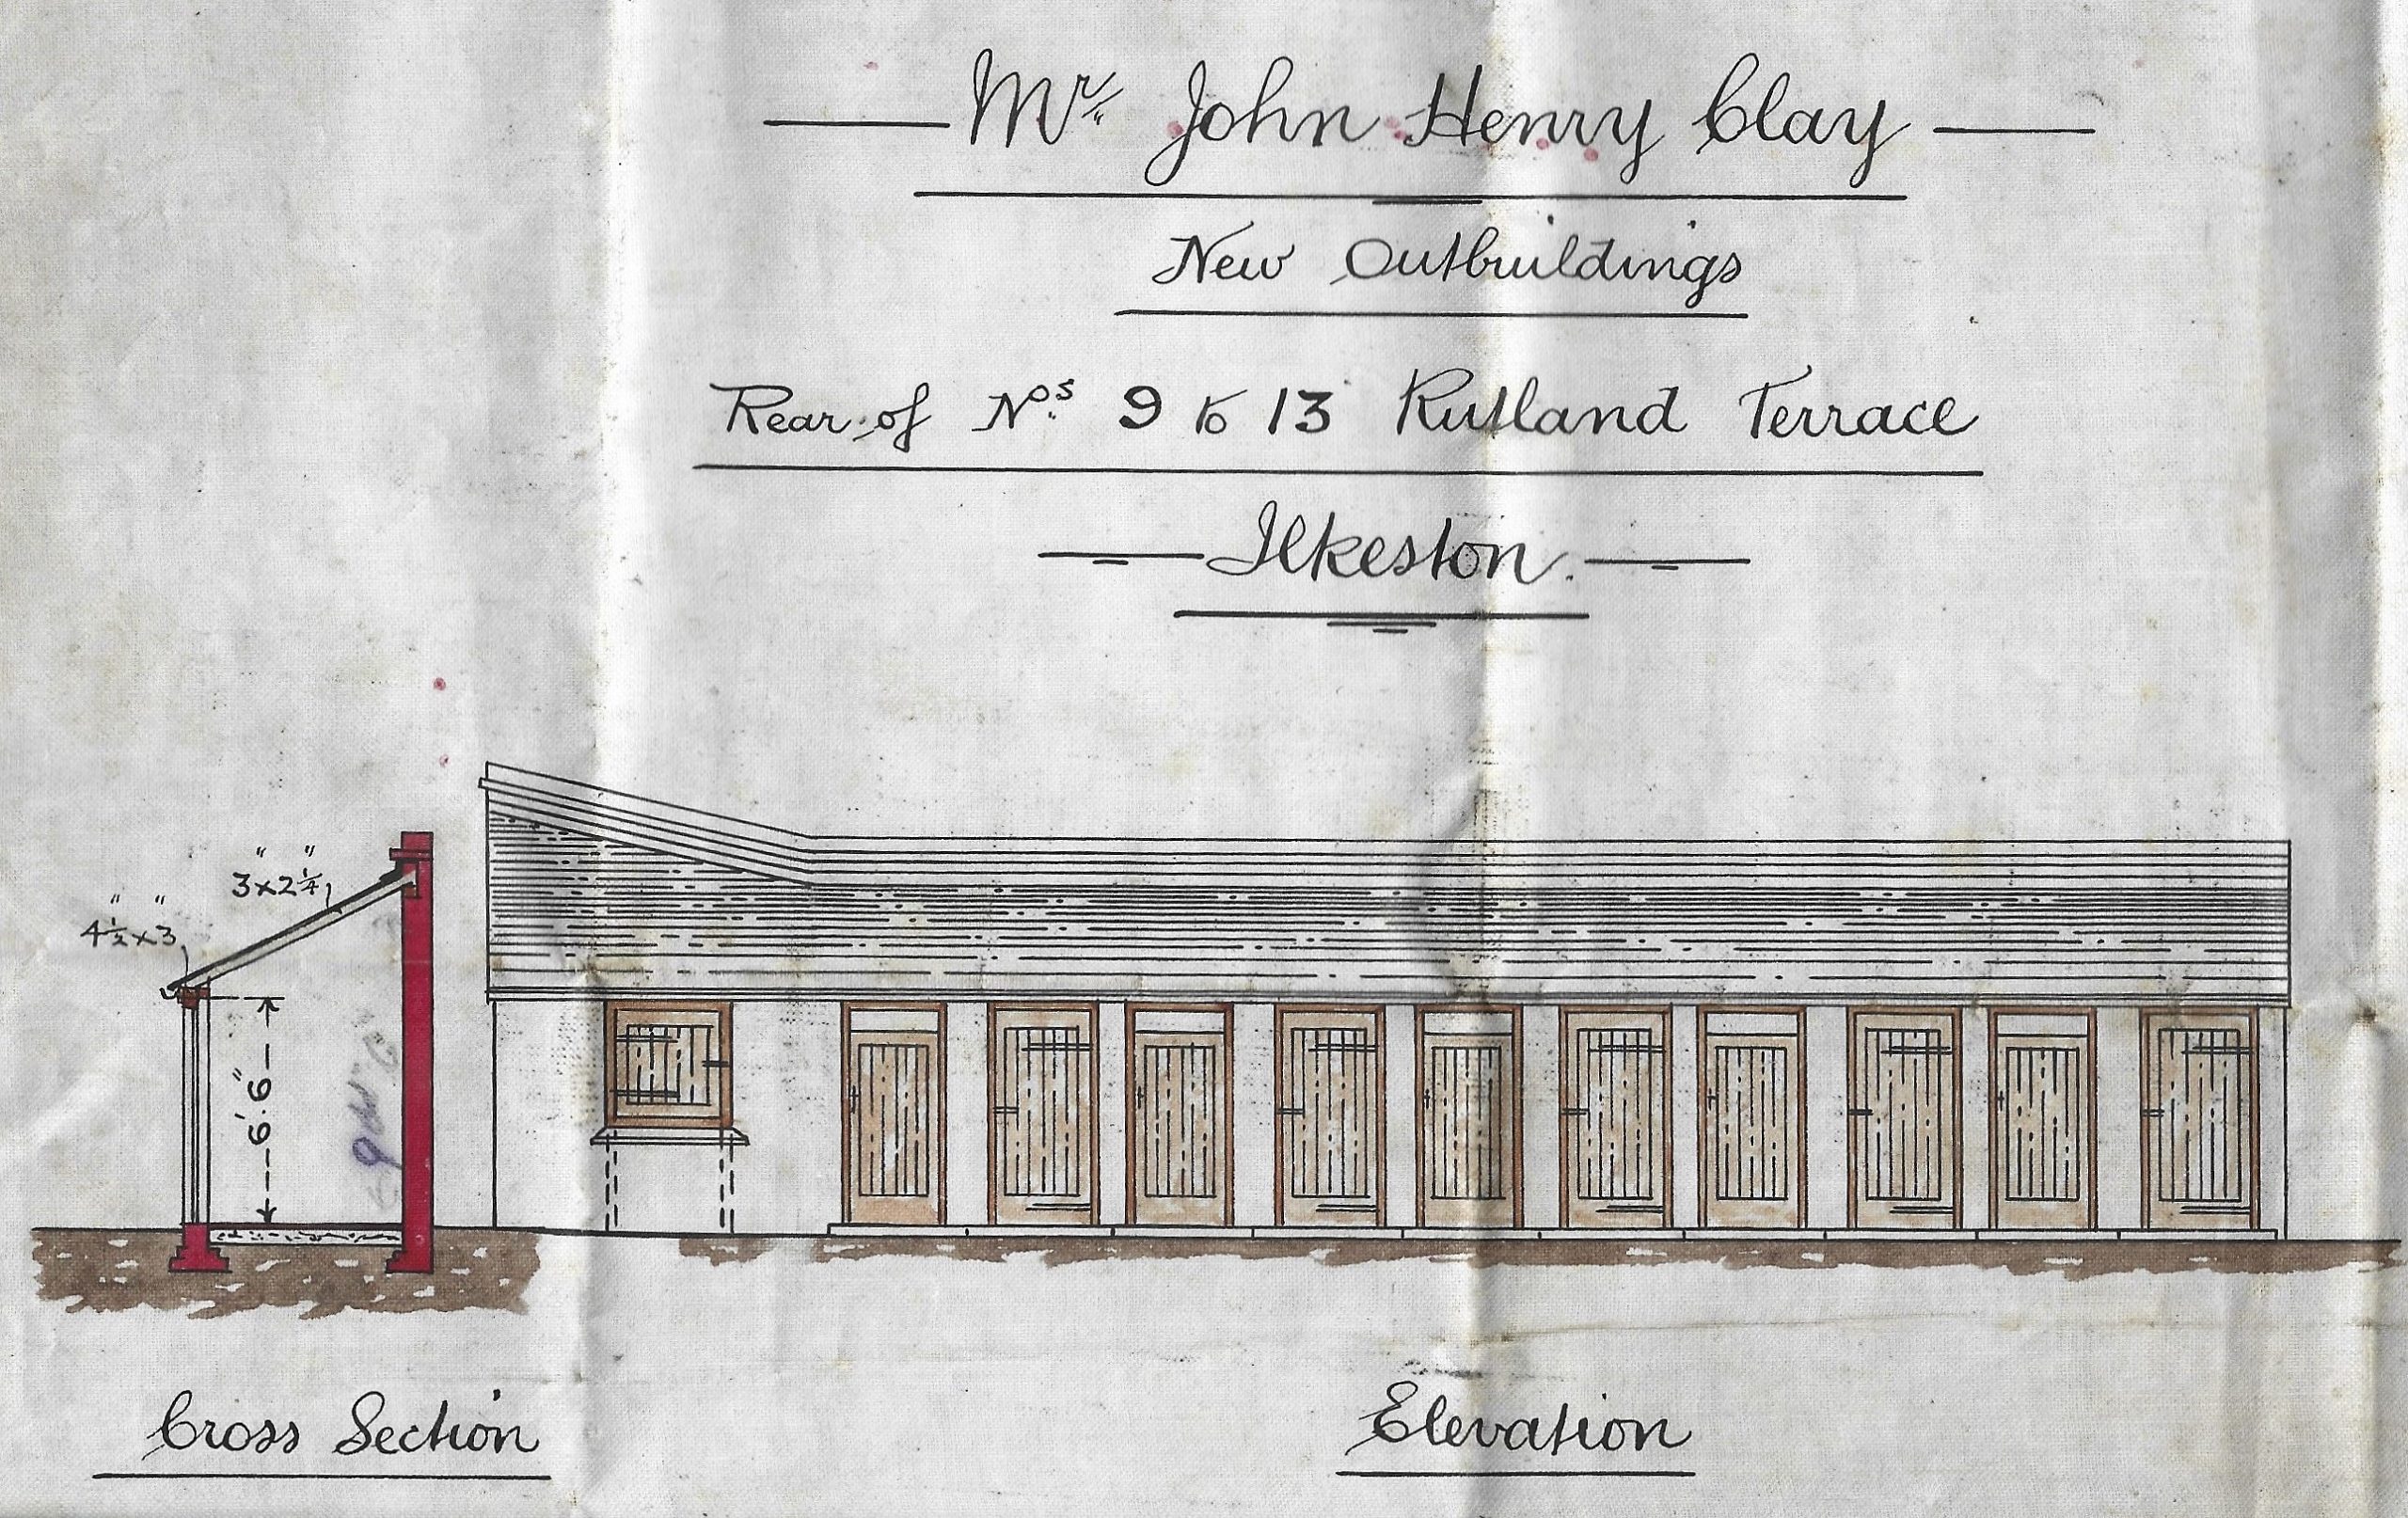 Mr. John Henry Clay
New Outbuildings
Rear of Nos. 9 to 13 Rutland Terrace
Ilkeston.
3" x 2¼"
4½" x 3"
6'.6"
Cross Section
Elevation